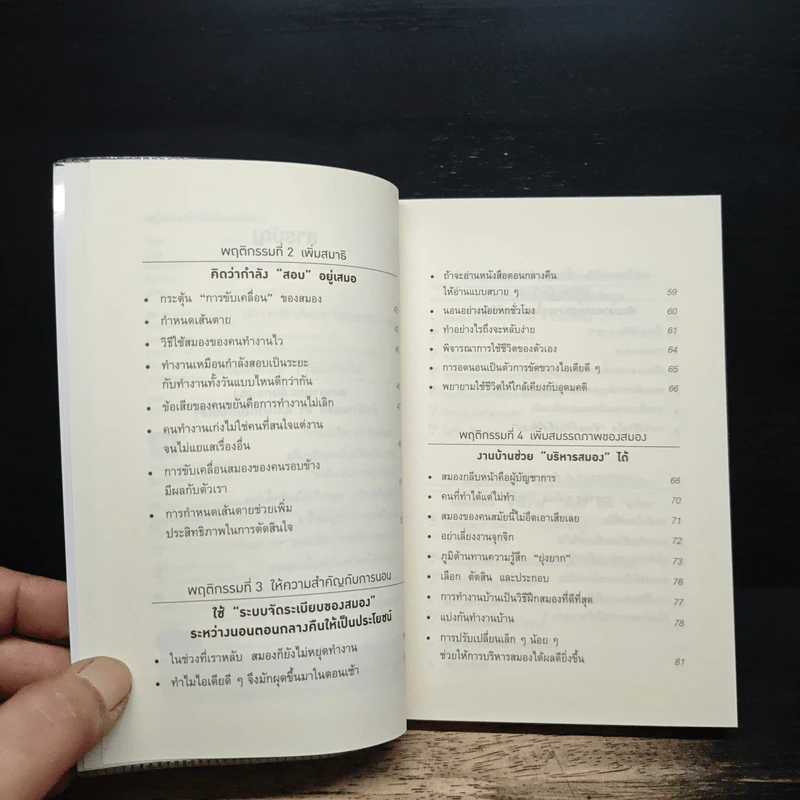 พฤติกรรมที่ 2 เพิ่มสมาธิ
คิดว่ากำลัง "สอบ" อยู่เสมอ
• กระตุ้น "การขับเคลื่อน" ของสมอง
• กำหนดเส้นตาย
• วิธีใช้สมองของคนทำงานไว
• ทำงานเหมือนกำลังสอบเป็นระยะ
กับทำงานทั้งวันแบบไหนดีกว่ากัน
• ข้อเสียของคนขยันคือการทำงานไม่เลิก
• คนทำงานเก่งไม่ใช่คนที่สนใจแต่งาน
จนไม่แยแสเรื่องอื่น
• การขับเคลื่อนสมองของคนรอบข้าง
มีผลกับตัวเรา
• การกำหนดเส้นตายช่วยเพิ่ม
ประสิทธิภาพในการตัดสินใจ
พฤติกรรมที่ 3 ให้ความสำคัญกับการนอน
ใช้ "ระบบจัดระเบียบของสมอง"
ระหว่างนอนตอนกลางคืนให้เป็นประโยชน์
• ในช่วงที่เราหลับ สมองก็ยังไม่หยุดทำงาน
• ทำไมไอเดียดี ๆ จึงมักผุดขึ้นมาในตอนเช้า
• ถ้าจะอ่านหนังสือตอนกลางคืน
ให้อ่านแบบสบาย ๆ 59
• นอนอย่างน้อยหกชั่วโมง 60
• ทำอย่างไรถึงจะหลับง่าย 61
• พิจารณาการใช้ชีวิตของตัวเอง 64
• การอดนอนเป็นตัวการขัดขวางไอเดียดี ๆ 65
• พยายามใช้ชีวิตให้ใกล้เคียงกับอุดมคติ 66
พฤติกรรมที่ 4 เพิ่มสมรรถภาพของสมอง
งานบ้านช่วย "บริหารสมอง" ได้
• สมองกลีบหน้าคือผู้บัญชาการ 68
• คนที่ทำได้แต่ไม่ทำ 70
• สมองของคนสมัยนี้ไม่อึดเอาเสียเลย 71
• อย่าเลี่ยงงานจุกจิก 72
• ภูมิต้านทานความรู้สึก "ยุ่งยาก" 73
• เลือก ตัดสิน และประกอบ 76
• การทำงานบ้านเป็นวิธีฝึกสมองที่ดีที่สุด 77
• แบ่งกันทำงานบ้าน 78
• การปรับเปลี่ยนเล็ก ๆ น้อย ๆ
ช่วยให้การบริหารสมองได้ผลดียิ่งขึ้น 81